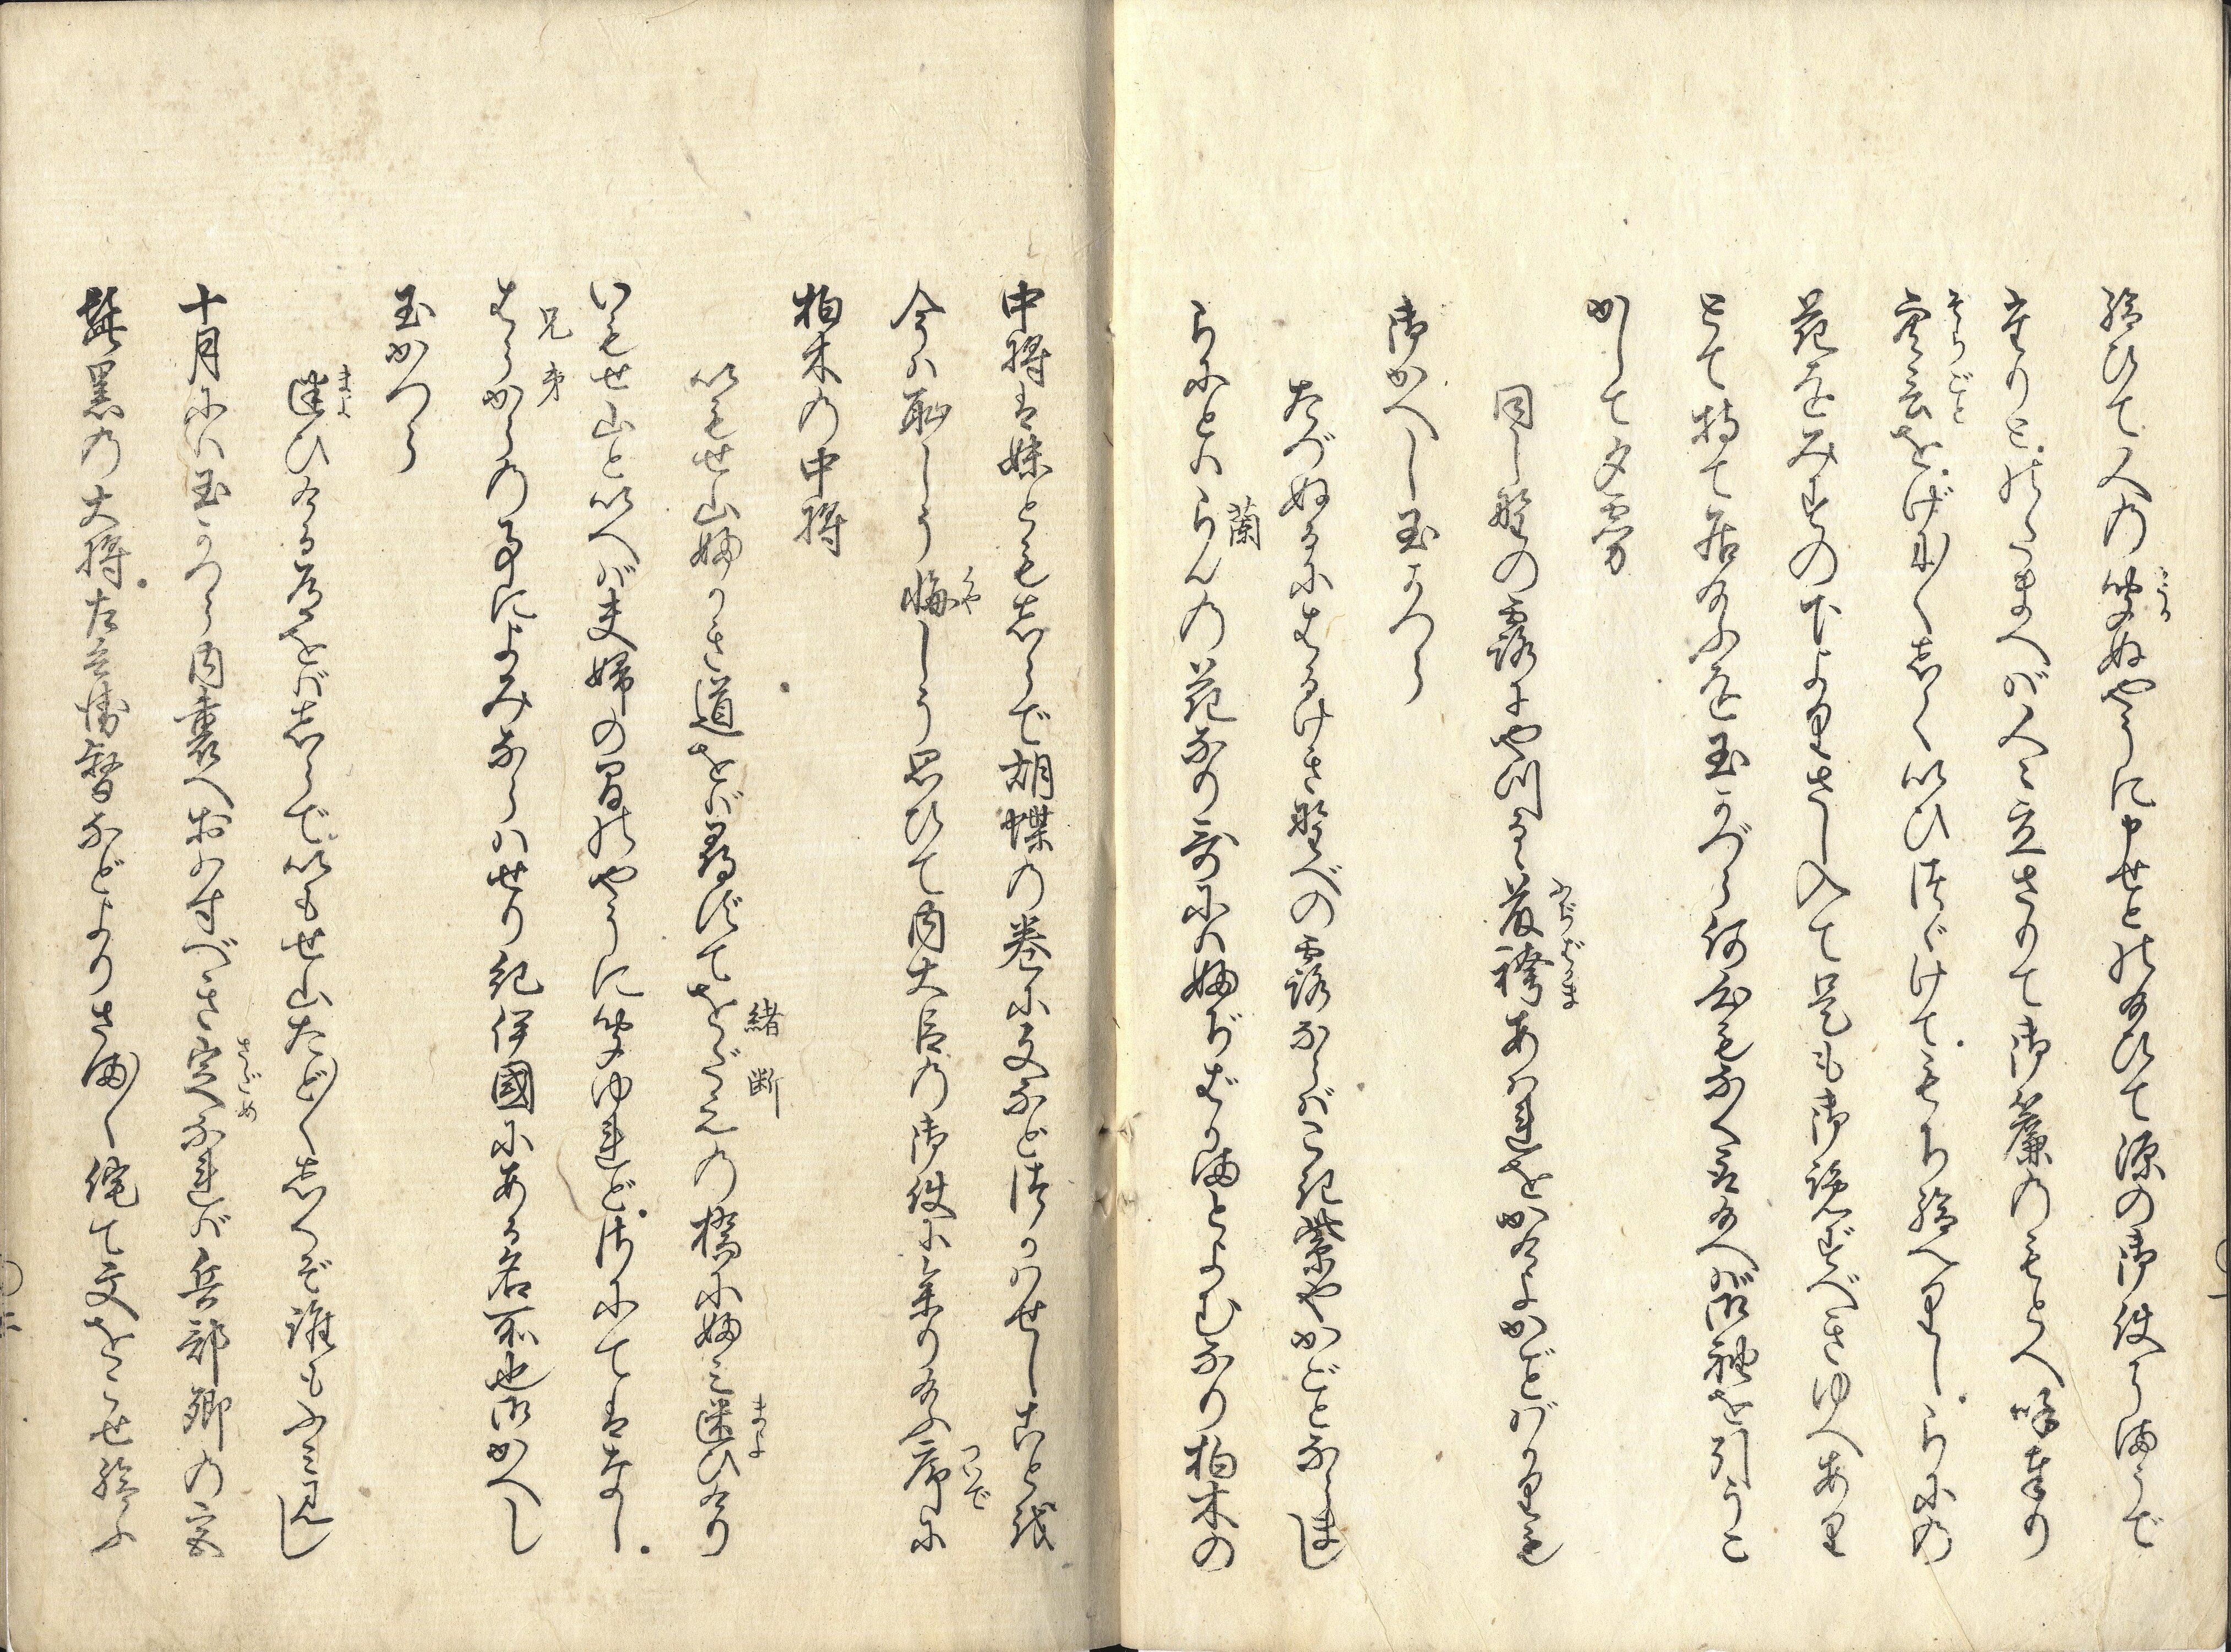 給ひて人の聞ぬやうに申せとのたまひて源の御使にまうで
来りとのたまへば人々立さりて御簾のもとへ呼奉り
空言をげに〳〵しくいひつゞけてもち給へりしらにの
花をみすの下よりさし入て是も御覧ずべきゆへあり
とて持て居給ふを玉かづら何心もなく取給へば御袖を引うご
かして夕霧
同し野の露にやつるゝ藤袴あはれはかけよかごとばかりも
御かへし玉かつら
たづぬるにはるけき野べの露ならばうす紫やかごとならまし
らにとはらんの花なり哥にはふぢばかまとよむなり柏木の
中将は妹ともしらで胡蝶の巻に文などつかはせしことを
今は恥しう悔しう思ひて内大臣の御使に来り給ふ序に
柏木の中将
いもせ山ふかき道をば尋ずてをだえの橋にふみ迷ひける
いもせ山といへば夫婦の間のやうに聞ゆれど爰にては
はらからの事によみならはせり紀伊国にある名所也御かへし
玉かつら
迷ひける道をばしらでいもせ山たど〳〵しくぞ誰もふみゝし
十月には玉かつら内裏へおはすべき定なれば兵部卿の宮
髭黒の大将左兵衛督などよりさま〴〵侘て文をこせ給ふ